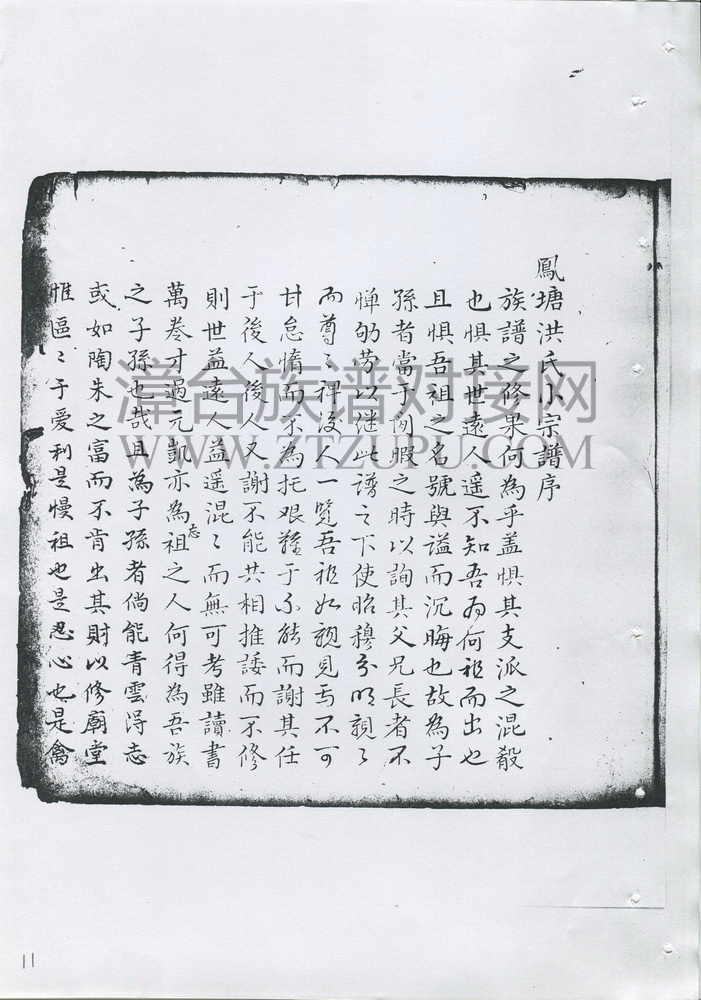 鳳塘洪氏小宗譜序
族譜之修果何為乎蓋惧其支派之混殽
也惧其世遠人遥不知吾為何祖而出也
且惧吾祖之名號與謚而沉晦也故為子
孫者當于閑暇之時以詢其父兄長者不
惮劬劳以继此譜之下使昭穆分明親〻
而尊〻祥後人一覽吾祖如親見焉不可
甘怠惰而不為托艰難于不能而謝其任
于後人後人又謝不能共相推諉而不修
則世益遠人益遥混〻而無可考雖讀書
萬卷才過元凱亦為忘祖之人何得為吾族
之子孫也哉且為子孫者倘能青雲得志
或如陶朱之富而不肯出其財以修廟堂
惟區〻于爱利是慢祖也是忍心也是禽
漳台族谱对接网
WWW.ZTZUPU.COM
11